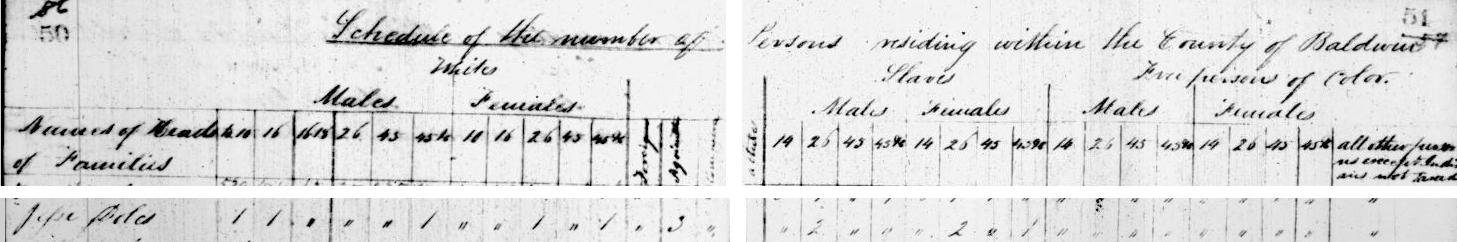 50
51
Schedule of the number of Persons residing within the County of Baldwin
Whites Slaves Free persons of Color.
Males Females Males Females Males Females
Names of Heads to 10 16 16 18 26 45 45 &c 10 16 26 45 45 &c 14 26 45 45 &c 14 26 45 45 &c 14 26 45 45 &c 14 26 45 45 &c all other perso
of Families ns except Indi
ans not taxed
Jesse Doles 1 1 " " " " 1 " " 1 " 1 " 3 " " 2 " " " 2 " 1 " " " " " " " " "